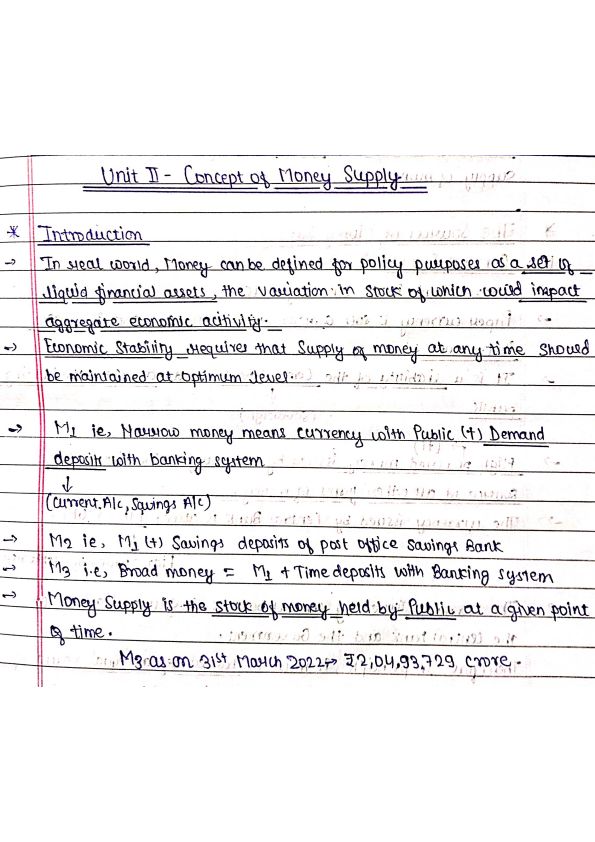 Unit II - Concept of Money Supply
* Introduction
→ In real world, Money can be defined for policy purposes as a set of
liquid financial assets, the variation in stock of which could impact
aggregate economic acitivity.
→ Economic Stability requires that Supply of money at any time should
be maintained at optimum level.
→ M1 ie, Narrow money means currency with Public (+) Demand
deposits with banking system
↓
(Current A/c, Savings A/c)
→ M2 ie, M1 (+) Savings deposits of post office savings Bank
→ M3 i.e, Broad money = M1 + Time deposits with Banking system
→ Money Supply is the stock of money held by Public at a given point
of time.
M3 as on 31st March 2022 → ₹2,04,93,729 crore.